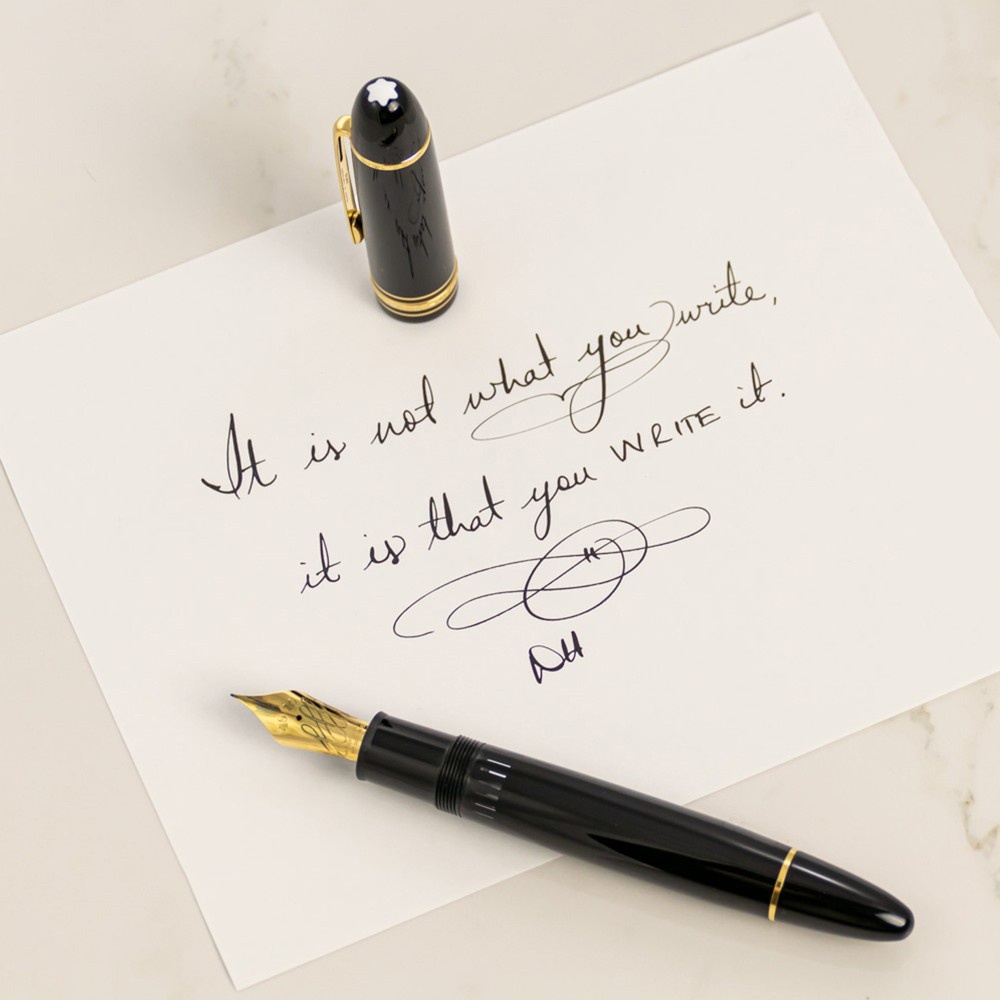 It is not what you write,
it is that you WRITE it.
DH